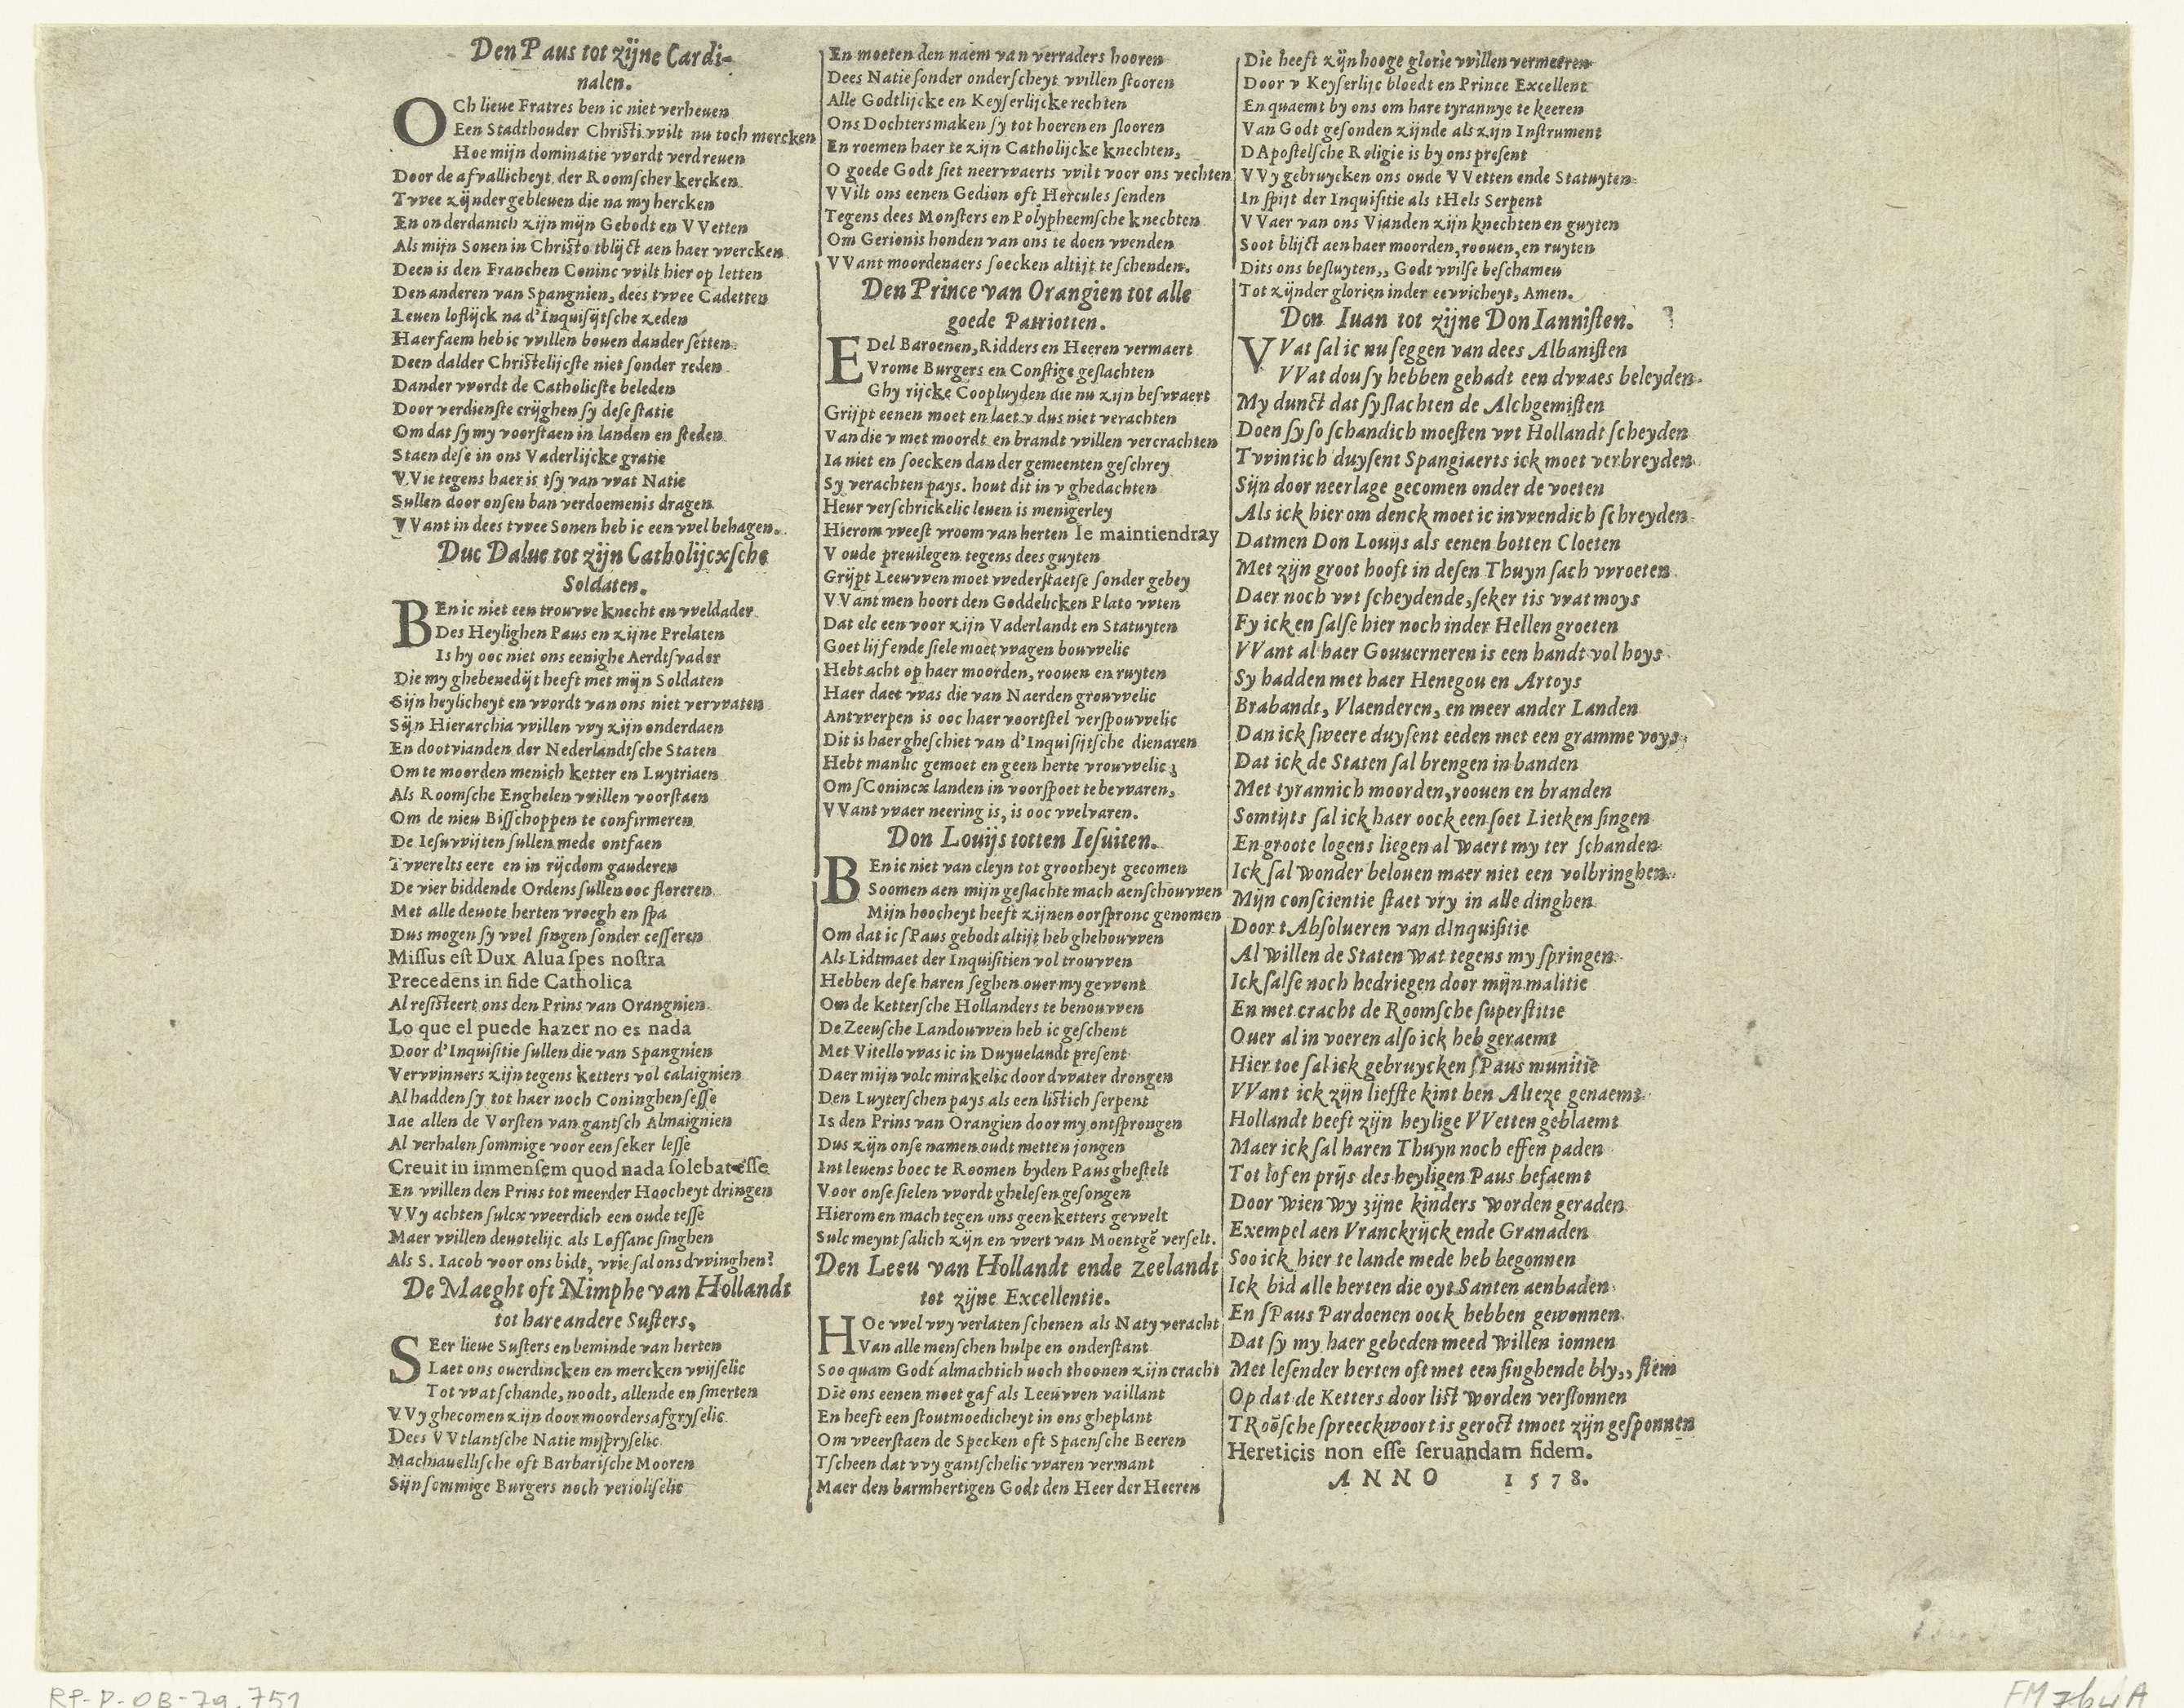 Den Paus tot zijne Cardi-
nalen.
OCh lieue Fratres ben ic niet verheuen
Een Stadthouder Christi vvilt nu toch mercken
Hoe mijn dominatie vvordt verdreuen
Door de afvallicheyt der Roomscher kercken
Tvvee zijnder gebleuen die na my hercken
En onderdanich zijn mijn Gebodt en VVetten
Als mijn Sonen in Christo tblijct aen haer vvercken
Deen is den Franchen Coninc vvilt hier op letten
Den anderen van Spangnien, dees tvvee Cadetten
Leuen loflijck na d'Inquisijtsche zeden
Haer faem heb ic vvillen bouen dander setten
Deen dalder Christelijcste niet sonder reden
Dander vvordt de Catholicste beleden
Door verdienste crijghen sy dese statie
Om dat sy my voorstaen in landen en steden
Staen dese in ons Vaderlijcke gratie
VVie tegens haer is tsy van vvat Natie
Sullen door onsen ban verdoemenis dragen
VVant in dees tvvee Sonen heb ic een vvel behagen.
Duc Dalue tot zijn Catholijcxsche
Soldaten.
BEn ic niet een trouvve knecht en vveldader
Des Heylighen Paus en zijne Prelaten
Is hy ooc niet ons eenighe Aerdtsvader
Die my ghebenedijt heeft met mijn Soldaten
Sijn heylicheyt en vvordt van ons niet vervvaten
Sijn Hierarchia vvillen vvy zijn onderdaen
En doot vianden der Nederlandtsche Staten
Om te moorden menich ketter en Luytriaen
Als Roomsche Enghelen vvillen voorstaen
Om de nieu Bisschoppen te confirmeren
De Iesuvvijten sullen mede ontfaen
Tvverelts eere en in rijcdom gauderen
De vier biddende Ordens sullen ooc floreren
Met alle deuote herten vroegh en spa
Dus mogen sy vvel singen sonder cesseren
Missus est Dux Alua spes nostra
Precedens in fide Catholica
Al resisteert ons den Prins van Orangnien
Lo que el puede hazer no es nada
Door d'Inquisitie sullen die van Spangnien
Vervvinners zijn tegens ketters vol calaignien
Al hadden sy tot haer noch Coninghen sesse
Iae allen de Vorsten van gantsch Almaignien
Al verhalen sommige voor een seker lesse
Creuit in immensem quod nada solebat esse
En vvillen den Prins tot meerder Hoocheyt dringen
VVy achten sulcx vveerdich een oude tesse
Maer vvillen deuotelijc als Lofsanc singhen
Als S. Iacob voor ons bidt, vvie sal ons dvvinghen?
De Maeght oft Nimphe van Hollandt
tot hare andere Susters.
SEer lieue Susters en beminde van herten
Laet ons ouerdincken en mercken vvijselic
Tot vvat schande, noodt, allende en smerten
VVy ghecomen zijn door moorders afgryselic
Dees VVtlantsche Natie mispryselic
Machiauellische oft Barbarische Mooren
Sijn sommige Burgers noch
En moeten den naem van verraders hooren
Dees Natie sonder onderscheyt vvillen stooren
Alle Godtlijcke en Keyserlijcke rechten
Ons Dochters maken sy tot hoeren en slooren
En roemen haer te zijn Catholijcke knechten,
O goede Godt siet neervvaerts vvilt voor ons vechten
VVilt ons eenen Gedion oft Hercules senden
Tegens dees Monsters en Polypheemsche knechten
Om Gerionis honden van ons te doen vvenden
VVant moordenaers soecken altijt te schenden.
Den Prince van Orangien tot alle
goede Patriotten.
EDel Baroenen, Ridders en Heeren vermaert
Vrome Burgers en Constige geslachten
Ghy rijcke Coopluyden die nu zijn besvvaert
Grijpt eenen moet en laet v dus niet verachten
Van die v met moordt en brandt vvillen vercrachten
Ia niet en soecken dan der gemeenten geschrey
Sy verachten pays. hout dit in v ghedachten
Heur verschrickelic leuen is menigerley
Hierom vveest vroom van herten Ie maintiendray
V oude preuilegen tegens dees guyten
Grijpt Leeuvven moet vvederstaetse sonder gebey
VVant men hoort den Goddelicken Plato vvten
Dat elc een voor zijn Vaderlandt en Statuyten
Goet lijf ende siele moet vvagen bouvvelic
Hebt acht op haer moorden, roouen en ruyten
Haer daet vvas die van Naerden grouvvelic
Antvverpen is ooc haer voortstel verspouvvelic
Dit is haer gheschiet van d'Inquisijtsche dienaren
Hebt manlic gemoet en geen herte vrouvvelic,
Om sConincx landen in voorspoet te bevvaren,
VVant vvaer neering is, is ooc vvelvaren.
Don Louijs totten Iesuiten.
BEn ic niet van cleyn tot grootheyt gecomen
Soomen aen mijn geslachte mach aenschouvven
Mijn hoocheyt heeft zijnen oorspronc genomen
Om dat ic sPaus gebodt altijt heb ghehouvven
Als Lidtmaet der Inquisitien vol trouvven
Hebben dese haren seghen ouer my gevvent
Om de kettersche Hollanders te benouvven
De Zeeusche Landouvven heb ic geschent
Met Vitello vvas ic in Duyuelandt present
Daer mijn volc mirakelic door dvvater drongen
Den Luyterschen pays als een listich serpent
Is den Prins van Orangien door my ontsprongen
Dus zijn onse namen oudt metten jongen
Int leuens boec te Roomen byden Paus ghestelt
Voor onse sielen vvordt ghelesen gesongen
Hierom en mach tegen ons geen ketters gevvelt
Sulc meynt salich zijn en vvert van Moentgē verselt.
Den Leeu van Hollandt ende Zeelandt
tot zijne Excellentie.
HOe vvel vvy verlaten schenen als Naty veracht
Van alle menschen hulpe en onderstant
Soo quam Godt almachtich noch thoonen zijn cracht
Die ons eenen moet gaf als Leeuvven vaillant
En heeft een stoutmoedicheyt in ons gheplant
Om vveerstaen de Specken oft Spaensche Beeren
Tscheen dat vvy gantschelic vvaren vermant
Maer den barmhertigen Godt den Heer der Heeren
Die heeft zijn hooge glorie vvillen vermeeren
Door v Keyserlijc bloedt en Prince Excellent
En quaemt by ons om hare tyrannye te keeren
Van Godt gesonden zijnde als zijn Instrument
DApostelsche Religie is by ons present
VVy gebruycken ons oude VVetten ende Statuyten
In spijt der Inquisitie als tHels Serpent
VVaer van ons Vianden zijn knechten en guyten
Soot blijct aen haer moorden, roouen, en ruyten
Dits ons besluyten,, Godt vvilse beschamen
Tot zijnder glorien inder eevvicheyt, Amen.
Don Iuan tot zijne Don Iannisten.
VVat sal ic nu seggen van dees Albanisten
VVat dou sy hebben gehadt een dvvaes beleyden
My dunct dat sy slachten de Alchgemisten
Doen sy so schandich moesten vvt Hollandt scheyden
Tvvintich duysent Spangiaerts ick moet verbreyden
Sijn door neerlage gecomen onder de voeten
Als ick hier om denck moet ic invvendich schreyden
Datmen Don Louijs als eenen botten Cloeten
Met zijn groot hooft in desen Thuyn sach vvroeten
Daer noch vvt scheydende, seker tis vvat moys
Fy ick en salse hier noch inder Hellen groeten
VVant al haer Gouuerneren is een handt vol hoys
Sy hadden met haer Henegou en Artoys
Brabandt, Vlaenderen, en meer ander Landen
Dan ick sweere duysent eeden met een gramme voys
Dat ick de Staten sal brengen in banden
Met tyrannich moorden, roouen en branden
Somtijts sal ick haer oock een soet Lietken singen
En groote logens liegen al waert my ter schanden
Ick sal wonder belouen maer niet een volbringhen
Mijn conscientie staet vry in alle dinghen
Door tAbsolueren van dInquisitie
Al willen de Staten wat tegens my springen
Ick salse noch bedriegen door mijn malitie
En met cracht de Roomsche superstitie
Ouer al in voeren also ick heb geraemt
Hier toe sal ick gebruycken sPaus munitie
VVant ick zijn liefste kint ben Alteze genaemt
Hollandt heeft zijn heylige VVetten geblaemt
Maer ick sal haren Thuyn noch effen paden
Tot lof en prijs des heyligen Paus befaemt
Door wien wy zijne kinders worden geraden
Exempel aen Vranckrijck ende Granaden
Soo ick hier te lande mede heb begonnen
Ick bid alle herten die oyt Santen aenbaden
En sPaus Pardoenen oock hebben gewonnen
Dat sy my haer gebeden meed willen ionnen
Met lesender herten oft met een singhende bly,, stem
Op dat de Ketters door list worden verslonnen
TRoōsche spreeckwoort is geroct tmoet zijn gesponnen
Hereticis non esse seruandam fidem.
ANNO 1578.
RP-P-OB-79.751
FM 764 A